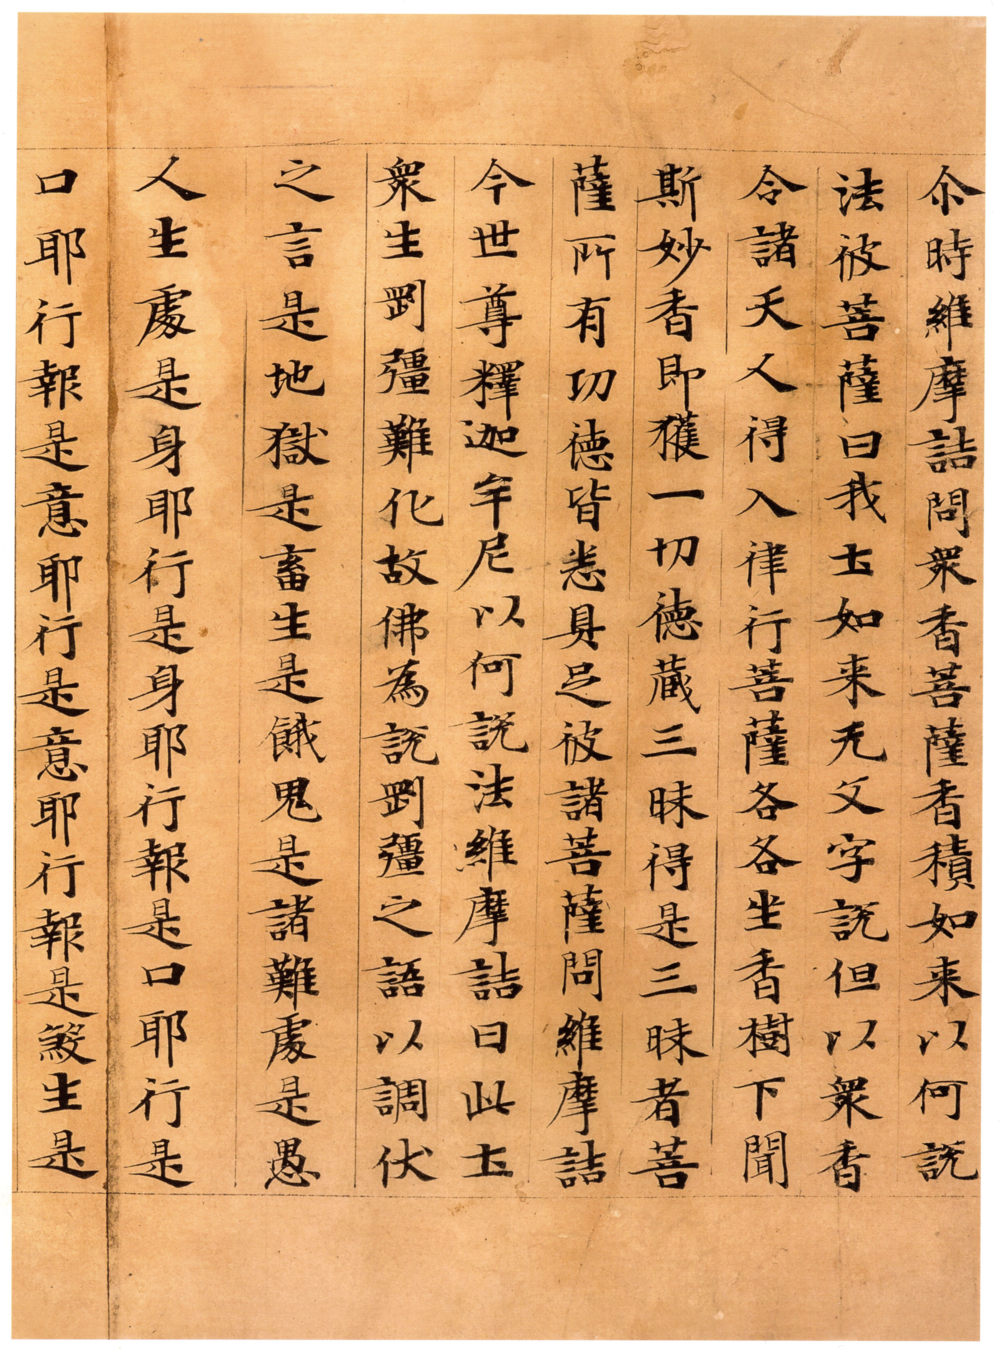 尒時維摩詰問衆香菩薩香積如来以何說
法彼菩薩曰我𡈽如来无文字說但以衆香
令諸天人得入律行菩薩各各坐香樹下聞
斯妙香即獲一切德藏三昧得是三昧者菩
薩所有功德皆悉具足彼諸菩薩問維摩詰
今世尊釋迦牟尼以何說法維摩詰曰此𡈽
衆生罡彊難化故佛為說罡彊之語以調伏
之言是地獄是畜生是餓鬼是諸難處是愚
人生處是身耶行是身耶行報是口耶行是
口耶行報是意耶行是意耶行報是煞生是